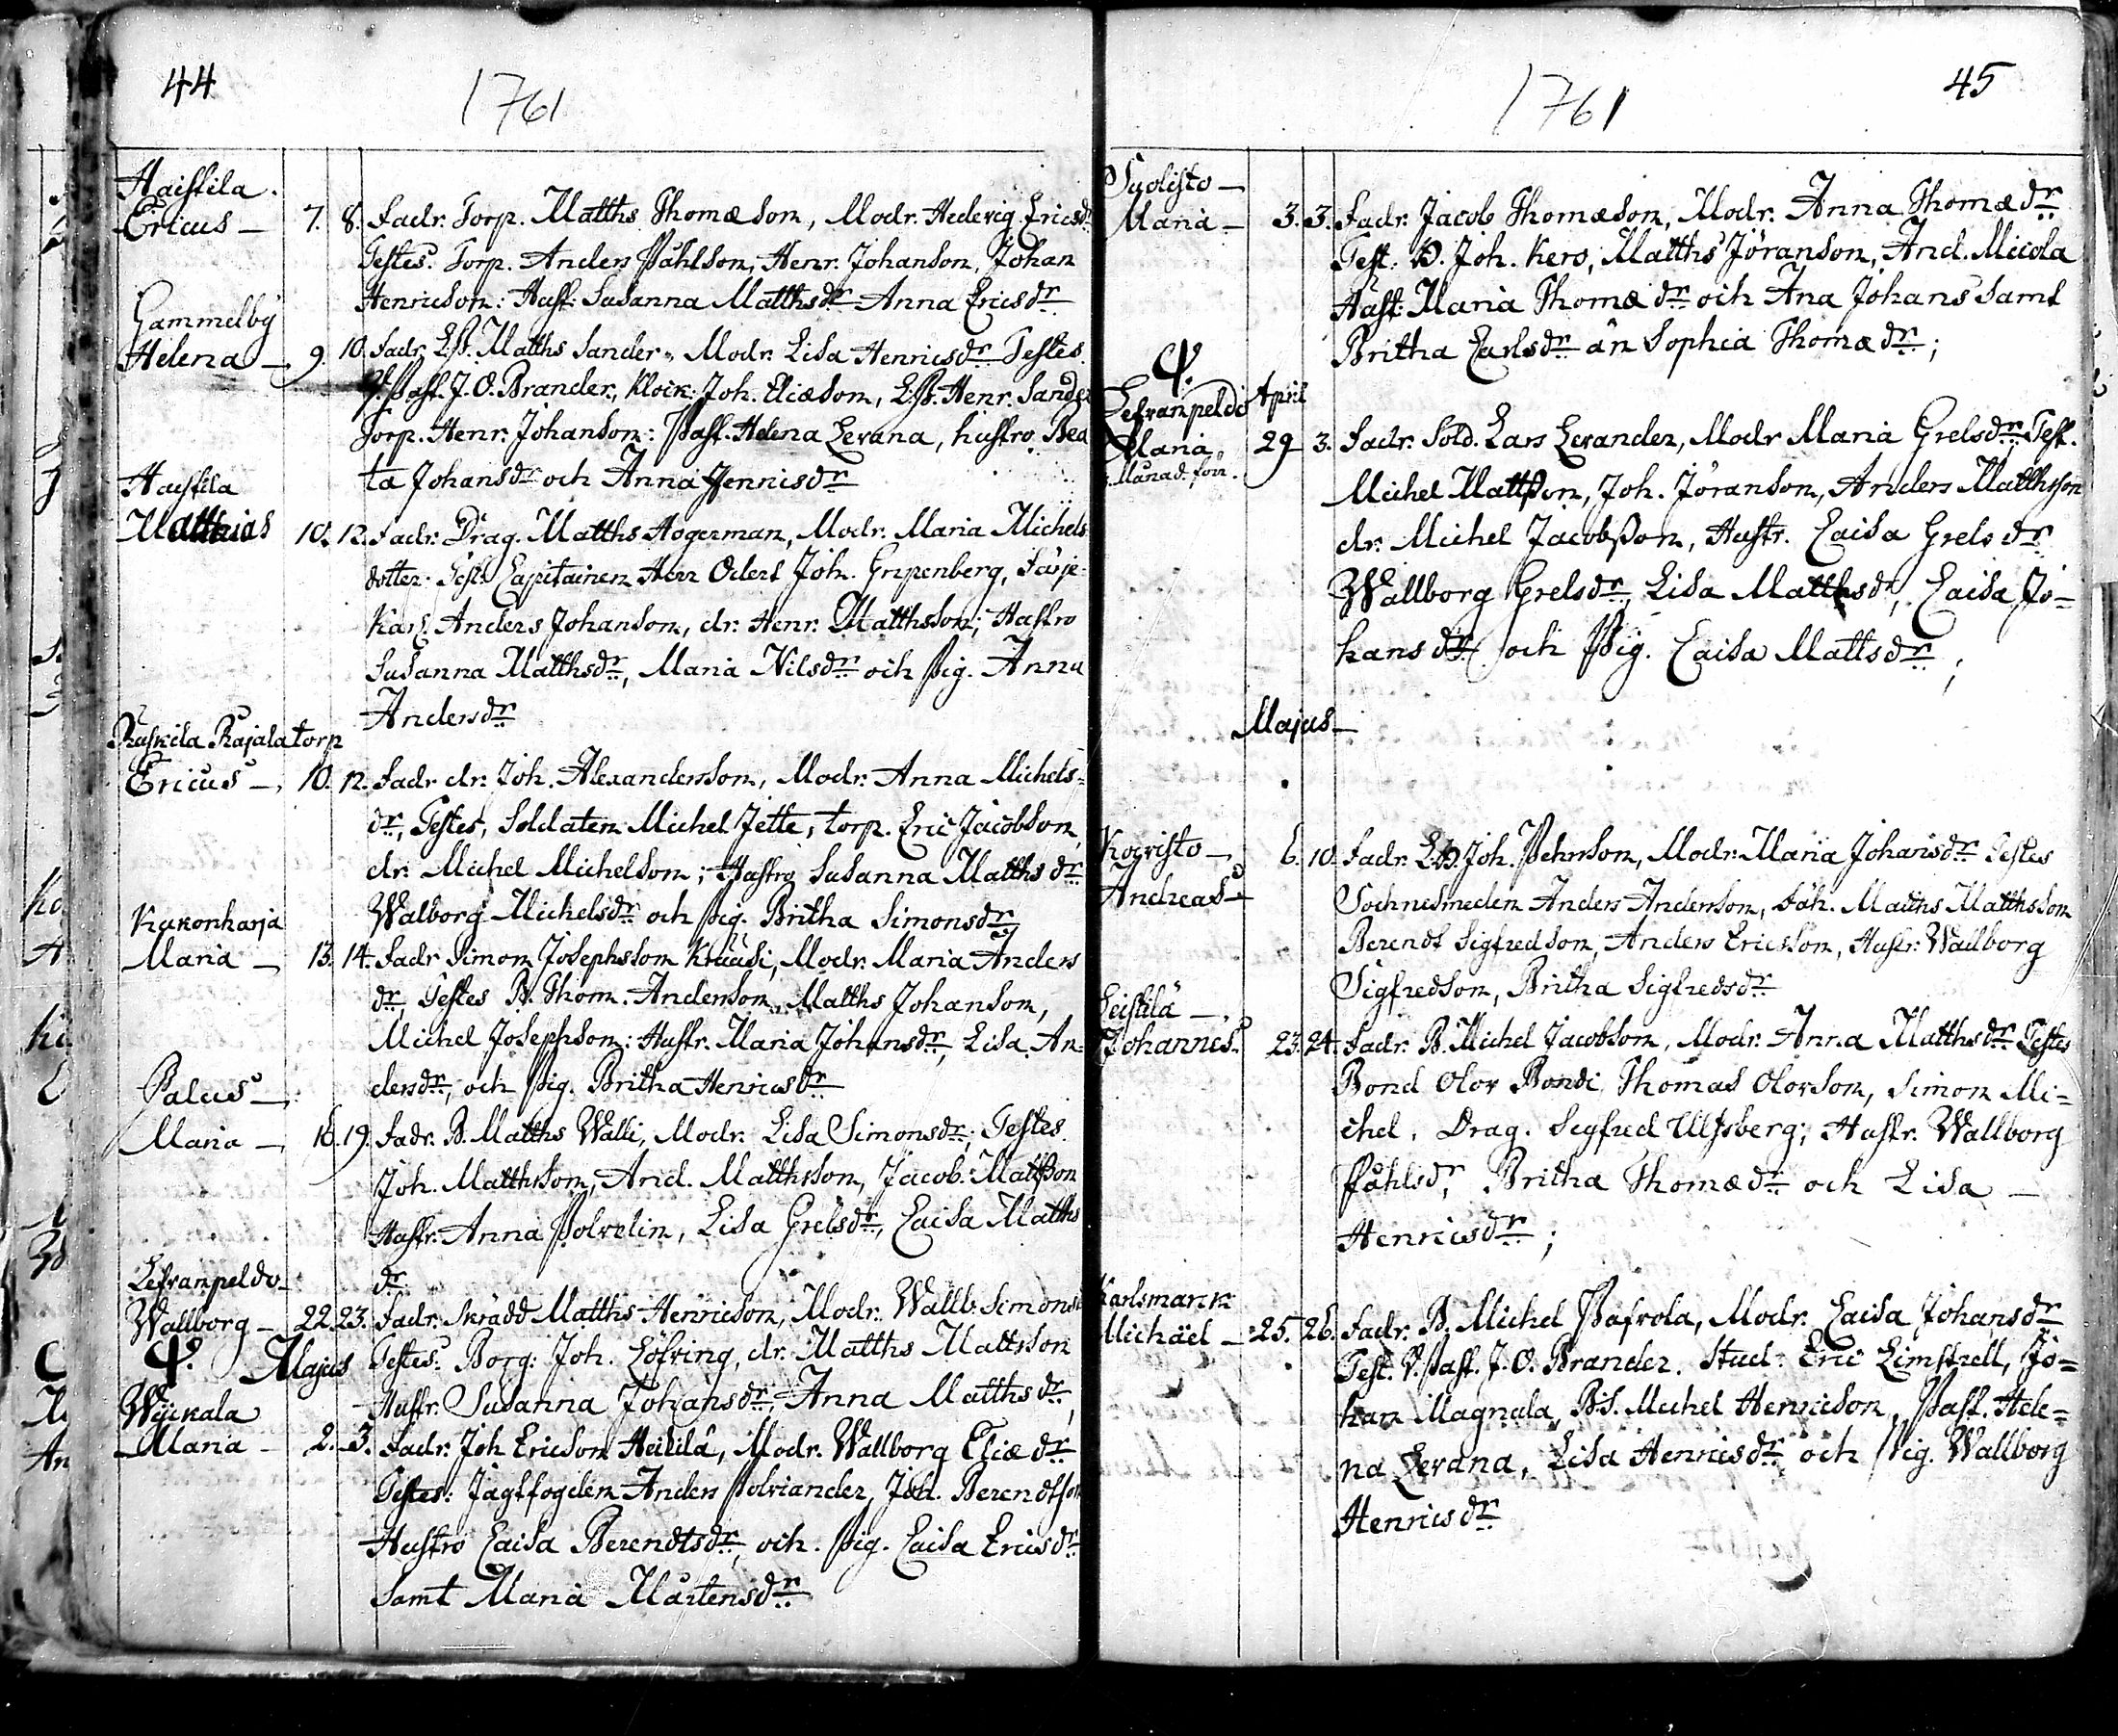 44
1761
Haistila.
Ericus — 7. 8. Fadr. Torp. Matths Thomæson, Modr. Hedevig Ericsdr
Testes. Torp. Anders Påhlson, Henr. Johanson, Johan
Henricson: Hust: Susanna Matthsdr Anna Ericsdr
Gammelby
Helena — 9. 10. Fadr. Matths Sander, Modr. Lisa Henricsdr Testes
Past. J. O. Brander, Klock: Joh. Eliæson, Henr. Sander
Torp. Henr. Johanson: Past. Helena Levana, hustro Bea
ta Johansdr och Anna Henricsdr
Haistila
Matthias 10. 12. Fadr. Drag. Matths Hogerman, Modr. Maria Michels
dotter. Test. Capitainen Herr Odert Joh. Gripenberg, Färje
Karl. Anders Johanson, dr. Henr. Matthsson; Hustro
Susanna Matthsdr, Maria Nilsdr och Pig. Anna
Andersdr
Ruskila Rajala torp
Ericus —, 10. 12. Fadr dr. Joh. Alexandersson, Modr. Anna Michels=
dr, Testes, Soldaten Michel Jette, torp. Eric Jacobson,
dr. Michel Michelson; Hustro Susanna Matths dr
Walborg Michelsdr och Pig. Britha Simonsdr
Kukonharja
Maria —, 13. 14. Fadr Simon Josephsson Knuusi, Modr. Maria Anders
dr, Testes B. Thom. Anderson, Matths Johanson,
Michel Josephson: Hustr. Maria Johansdr, Lisa An=
dersdr, och Pig. Britha Henricsdr
Palus —
Maria —, 16. 19. Fadr. B. Matths Walli, Modr. Lisa Simonsdr; Testes
Joh. Matthsson, And. Matthsson, Jacob. Mattson
Hustr. Anna Polvelin, Lisa Grelsdr, Caisa Matths
dr
Lefvanpeldo
Wallborg — 22. 23. Fadr. Skrädd Matths Henricson, Modr. Wallb. Simonsd
Testes. Borg: Joh. Löfving, dr. Matths Mattsson
Majus
Hustr. Susanna Johansdr, Anna Matthsdr,
Wyckala
Maria — 2. 3. Fadr. Joh Ericson Heikilä, Modr. Wallborg Eliædr
Testes: Jagtfogden Anders Polviander, Joh. Berendtson
Hustro Caisa Berendtsdr, och Pig. Caisa Ericsdr
Samt Maria Mårtensdr
45
1761
Suolisto —
Maria — 3. 3. Fadr. Jacob Thomæson, Modr. Anna Thomædr
Test: B. Joh. Kero, Matths Jöranson, And. Micola
Hust: Maria Thomædr och Ana Johans Samt
Britha Carlsdr än Sophia Thomædr;
April
Lefvanpeldo
Maria 29 3. Fadr. Sold. Lars Levander, Modr Maria Grelsdr. Test.
Månad förr.
Michel Mattson, Joh. Jöranson, Anders Matthsson
dr. Michel Jacobsson, Hustr. Caisa Grelsdr
Wallborg Grelsdr, Lisa Matthsdr, Caisa Jo=
hansdr och Pig. Caisa Mattsdr;
Majus —
Koivisto —
Andreas — 6. 10. Fadr. Joh. Pehrson, Modr. Maria Johansdr Testes
Sochnesmeden Anders Anderson, Matths Matthsson
Berendt Sigfredson, Anders Ericsson, Hustr: Wallborg
Sigfredson, Britha Sigfredsdr
Leistilä —
Johannes 23. 24. Fadr. B. Michel Jacobson, Modr. Anna Matthsdr Testes
Bond Olov Bondi Thomas Olovson, Simon Mi=
chel, Drag. Segfred Ulfsberg; Hustr. Wallborg
Påhlsdr, Britha Thomædr och Lisa —
Henricsdr;
Karlsmarck
Michäel — 25. 26. Fadr. B. Michel Pafvola, Modr. Caisa Johansdr
Test. V. Past. J. O. Brander. Stud: Eric Limstrell, Jo=
han Magnula, BS. Michel Henricson, Past. Hele=
na Levana, Lisa Henricsdr och Pig. Wallborg
Henricsdr